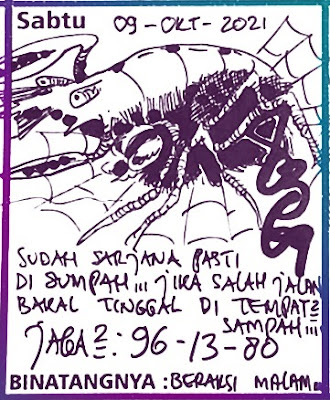 Sabtu 09-OKT-2021
SUDAH SARJANA PASTI
DI SUMPAH!!! JIKA SALAH JALAN
BAKAL TINGGAL DI TEMPAT2
SAMPAH!!!
JAGA2: 96-13-80
BINATANGNYA : BERAKSI MALAM..